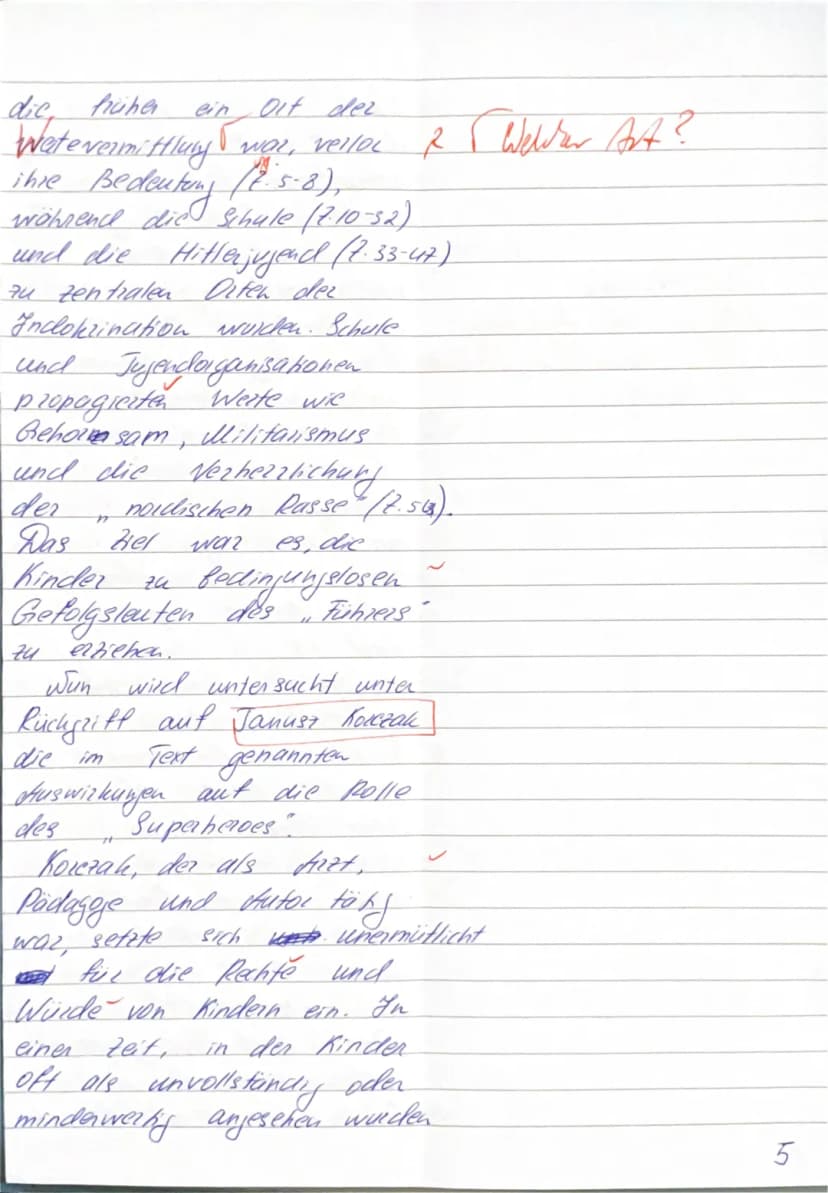 die, früher ein Ort der
Wertevermittlung war, verlor R Γ Welcher Art?
ihre Bedeutung (Z. 5-8),
während die Schule (Z. 10-32)
und die Hitlerjugend (Z. 33-47)
zu zentralen Orten der
Indoktrination wurden. Schule
und Jugendorganisationen
propagierten Werte wie
Gehorsam, Militarismus
und die Verherrlichung
der „nordischen Rasse" (Z.
Das Ziel war es, die
Kinder zu bedingungslosen
Gefolgsleuten des „Führers"
zu erziehen.
Nun wird untersucht unter
Rückgriff auf Janusz Korczak
die im Text genannten
Auswirkungen auf die Rolle
des „Superheroes".
Korczak, der als Arzt,
Pädagoge und Autor tätig
war, setzte sich unermütlicht
für die Rechte und
Würde von Kindern ein. In
einer Zeit, in der Kinder
oft als unvollständig oder
minderwertig angesehen wurden
5